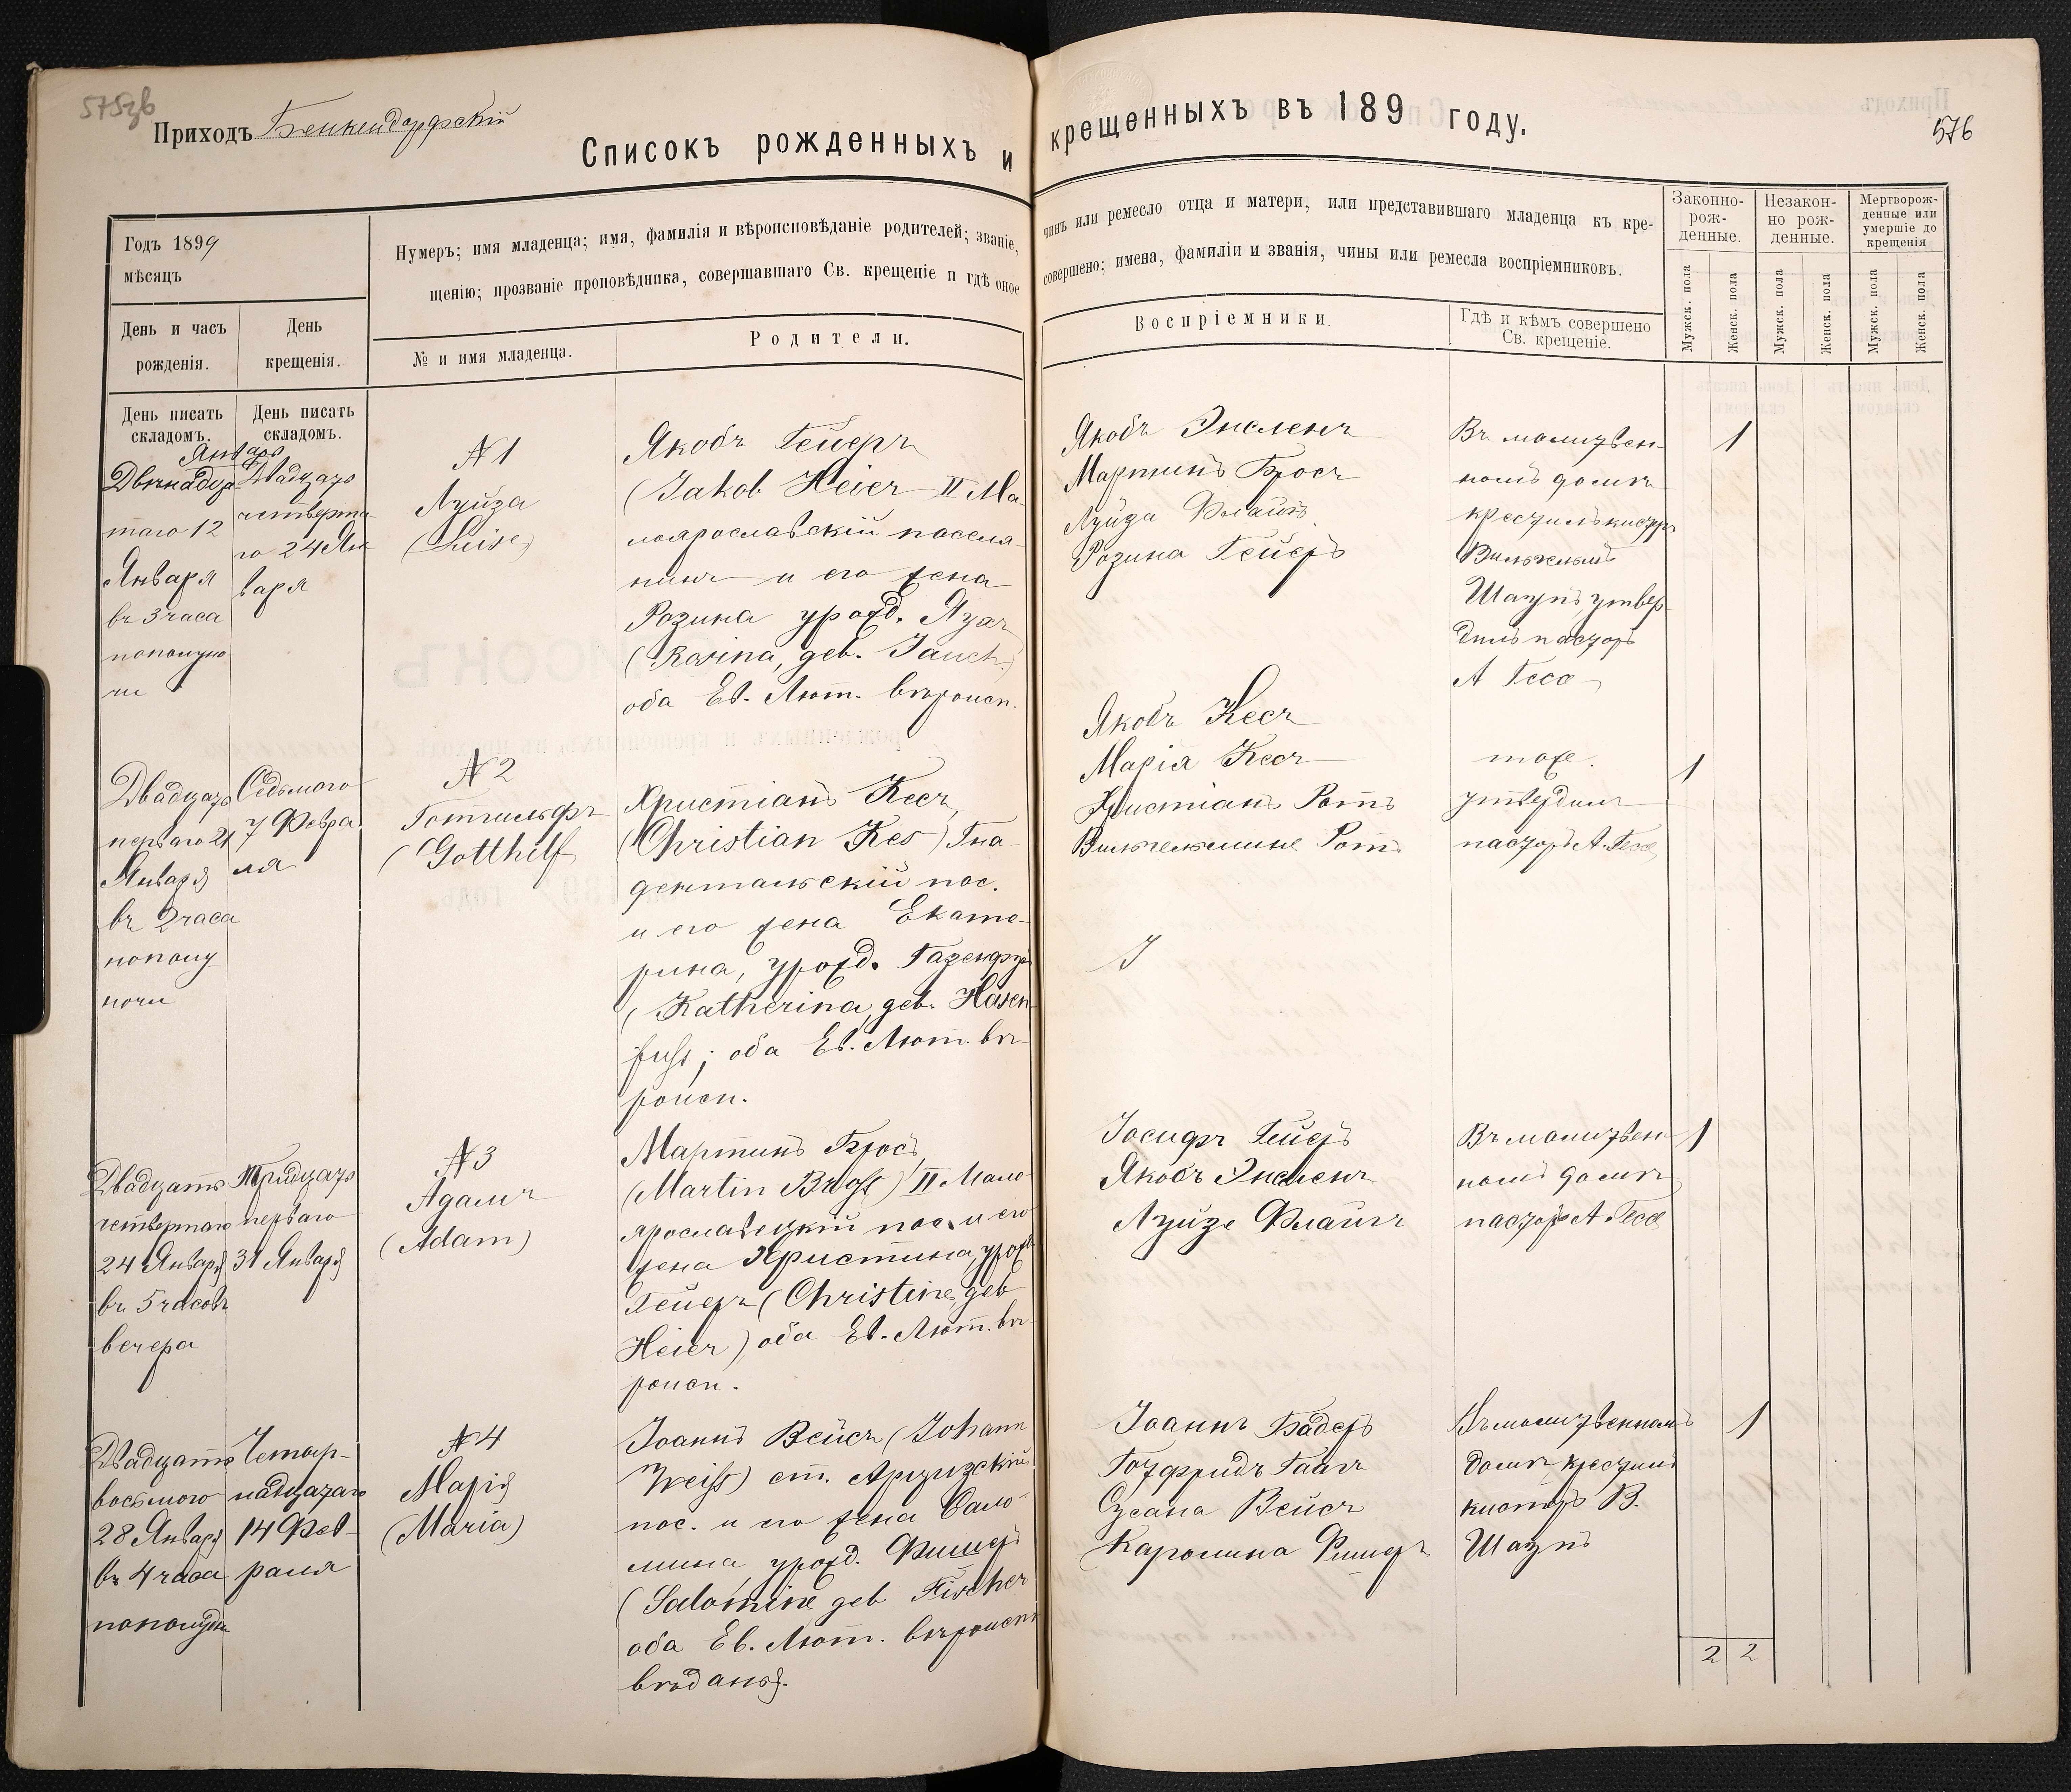 575зв
Приходъ Бенкендорфскій
576
Списокъ рожденныхъ и крещенныхъ въ 189 году.
Годъ 1899
мѣсяцъ
Нумеръ; имя младенца; имя, фамилія и вѣроисповѣданіе родителей; званіе, чинъ или ремесло отца и матери, или представившаго младенца къ кре-
щенію; прозваніе проповѣдника, совершавшаго Св. крещеніе и гдѣ оное совершено; имена, фамиліи и званія, чины или ремесла воспріемниковъ.
День и часъ
рожденія.
День
крещенія.
№ и имя младенца.
Родители.
Воспріемники.
Гдѣ и кѣмъ совершено
Св. крещеніе.
Законно-
рож-
денные.
Незакон-
но рож-
денные.
Мертворож-
денные или
умершіе до
крещенія
Мужск. пола
Женск. пола
Мужск. пола
Женск. пола
Мужск. пола
Женск. пола
День писать
складомъ.
День писать
складомъ.
Январь
Двѣнадца
таго 12
Января
въ 3 часа
пополуно
чи
Двадцать
четверта
го 24 Ян
варя
№ 1
Луиза
(Luise)
Якобъ Гейеръ
(Jakob Heier II Ма-
лоярославскій поселя-
нинъ и его жена
Розина урожд. Яухъ
(Rosina, geb. Jauch.)
оба Ев. Лют. вѣроисп.
Якобъ Энсленъ
Мартинъ Бросъ
Луиза Флайгъ
Розина Гейеръ
Въ молитвен-
номъ домѣ
крестилъ кистеръ
Вильгельмъ
Шаупъ, утвер-
дилъ пасторъ
А Гессе
1
Двадцать
перваго 21
Января
въ 2 часа
пополу
ночи
Седьмого
7 Февра
ля
№ 2
Готтильфъ
(Gotthilf
Христіанъ Кесъ,
(Christian Kes) Гна-
дентальскій пос.
и его жена Екате-
рина, урожд. Газенфус
(Katherina, geb. Hasen-
fuss; оба Ев. Лют. вѣ-
роисп.
Якобъ Кесъ
Марія Кесъ
Христіанъ Ротъ
Вильгельмине Ротъ
тоже.
утвердилъ
пасторъ А. Гессе
1
Двадцать
четвертаго
24 Января
въ 5 часовъ
вечера
Тридцать
перваго
31 Января
№ 3
Адамъ
(Adam)
Мартинъ Бросъ
(Martin Bross) II Мало
ярославецкій пос. и его
жена Христина, урожд
Гейеръ (Christine, geb
Heier) оба Ев. Лют. вѣ
роисп.
Іосифъ Гейеръ
Якобъ Энсленъ
Луизе Флайгъ
Въ молитвен
номъ домѣ
пасторъ А. Гессе
1
Двадцать
восьмого
28 Января
въ 4 часа
пополудни
Четыр-
надцатаго
14 Фев-
раля
№ 4
Марія
(Maria)
Іоаннъ Вейсъ (Johann
Weiss) ст. Арцизскій
пос. и его жена Сало-
мина, урожд. Фишеръ
(Salomine geb Fischer
оба Ев. Лют. вѣроиспо
вѣданія.
Іоаннъ Бадеръ
Готфридъ Гаагъ
Сусана Вейсъ
Каролина Фишеръ
Въ молитвенномъ
домѣ крестилъ
кистеръ В.
Шаупъ
1
2 2